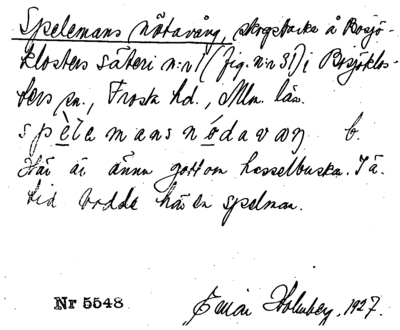 Spelemans nötavång, skogsbacke å Bosjö-
klosters säteri n:r 1 (fig. n:r 31) i Bosjöklos-
ters sn., Frosta hd., Mlm. län.
spèlemans nódavaŋ b.
Här är ännu gott om hasselbuskar. I ä.
tid bodde här en spelman.
Nr 5548 Holmberg, 1927.